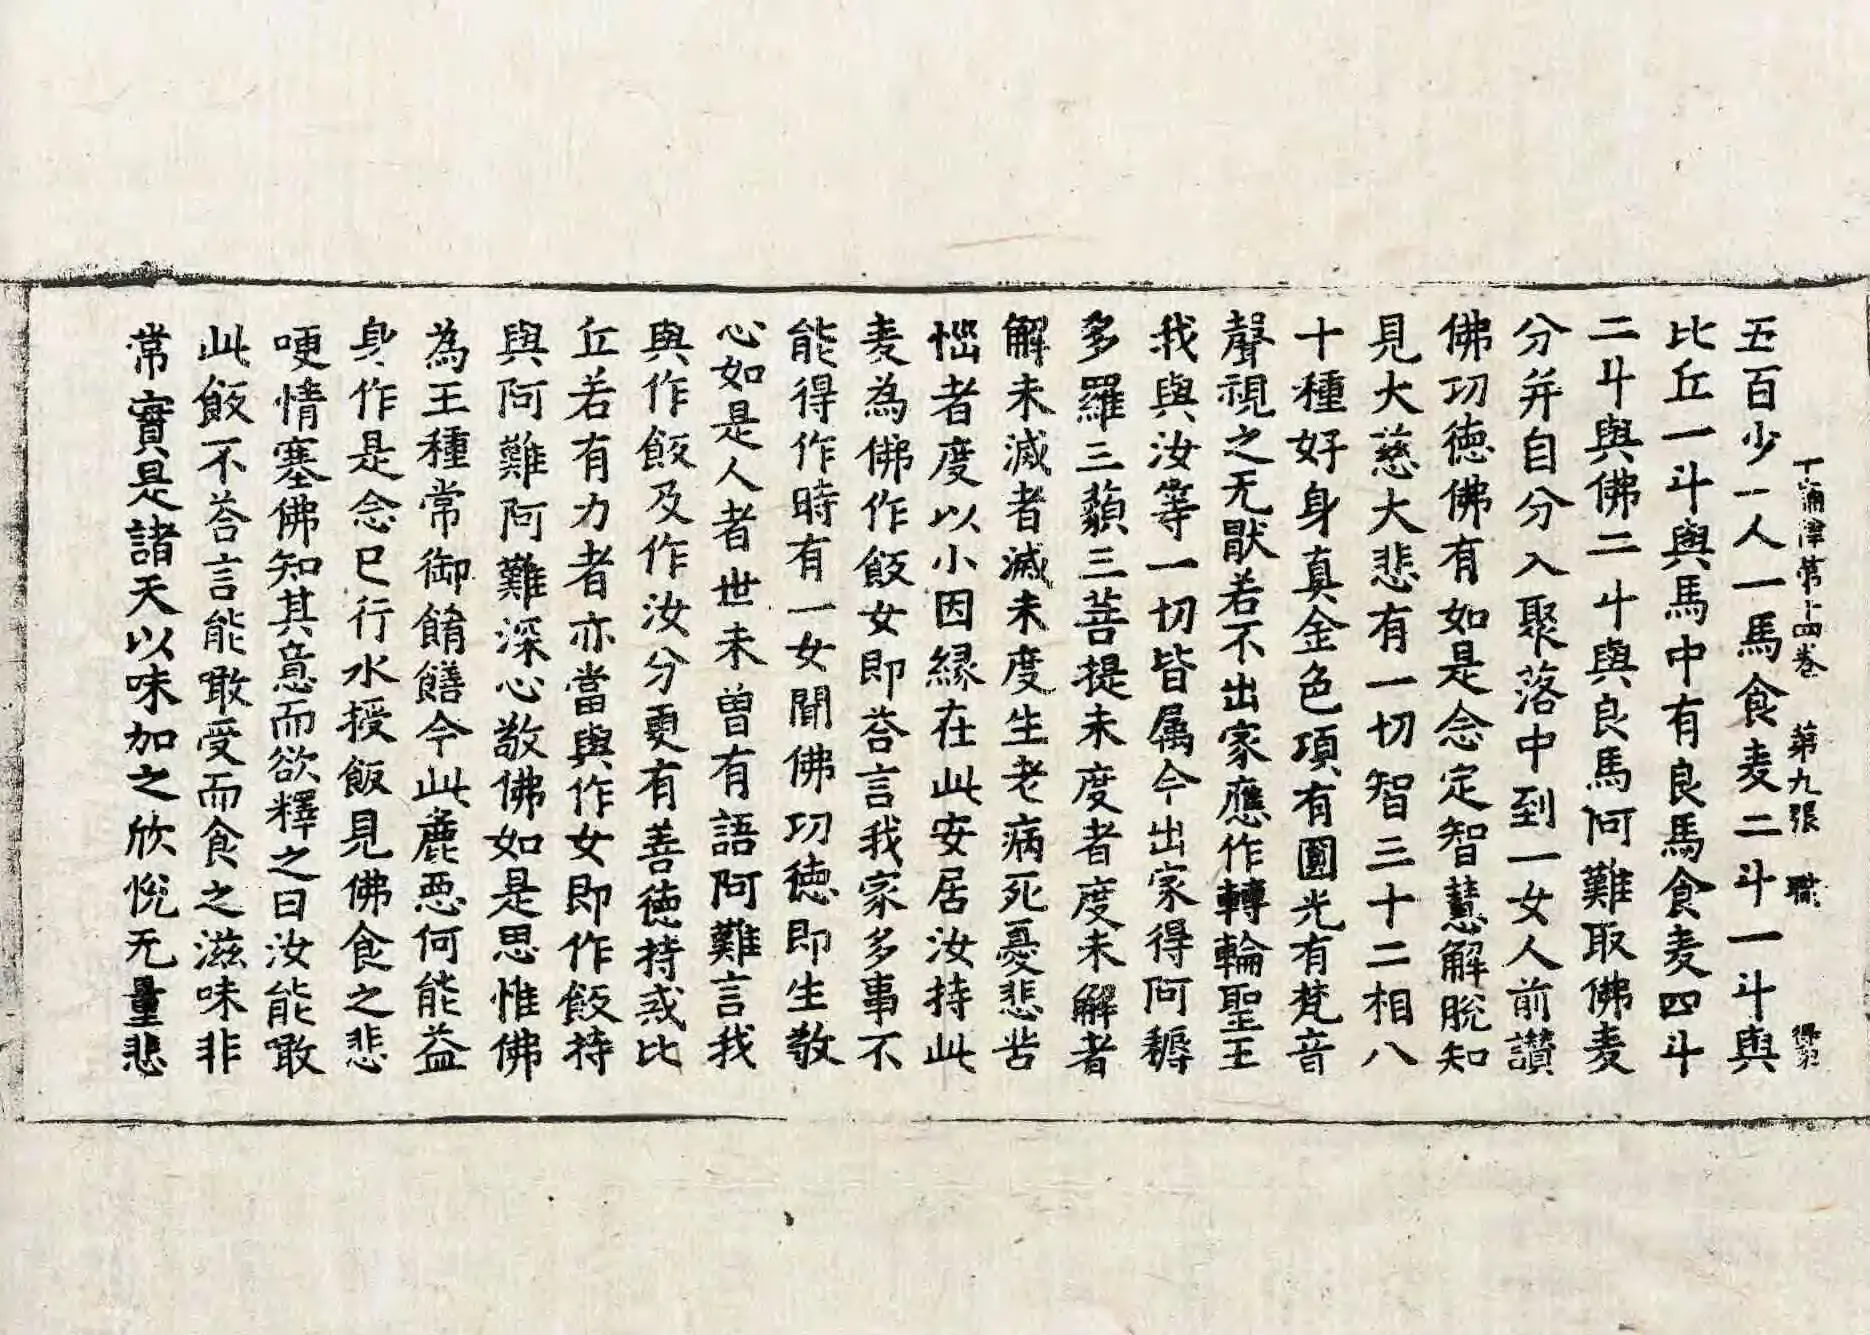 十誦律第十四卷 第九張 職
五百少一人一馬食麦二斗一斗與
比丘一斗與馬中有良馬食麦四斗
二斗與佛二斗與良馬阿難取佛麦
分并自分入聚落中到一女人前讃
佛功徳佛有如是念定智慧解脱知
見大慈大悲有一切智三十二相八
十種好身真金色項有圓光有梵音
聲視之无厭若不出家應作轉輪聖王
我與汝等一切皆属今出家得阿耨
多羅三藐三菩提未度者度未解者
解未滅者滅未度生老病死憂悲苦
惱者度以小因縁在此安居汝持此
麦為佛作飯女即荅言我家多事不
能得作時有一女聞佛功徳即生敬
心如是人者世未曽有語阿難言我
與作飯及作汝分更有善徳持戒比
丘若有力者亦當與作女即作飯持
與阿難阿難深心敬佛如是思惟佛
為王種常御餚饍今此麁惡何能益
身作是念已行水授飯見佛食之悲
哽情塞佛知其意而欲釋之曰汝能噉
此飯不荅言能噉受而食之滋味非
常實是諸天以味加之欣悅无量悲